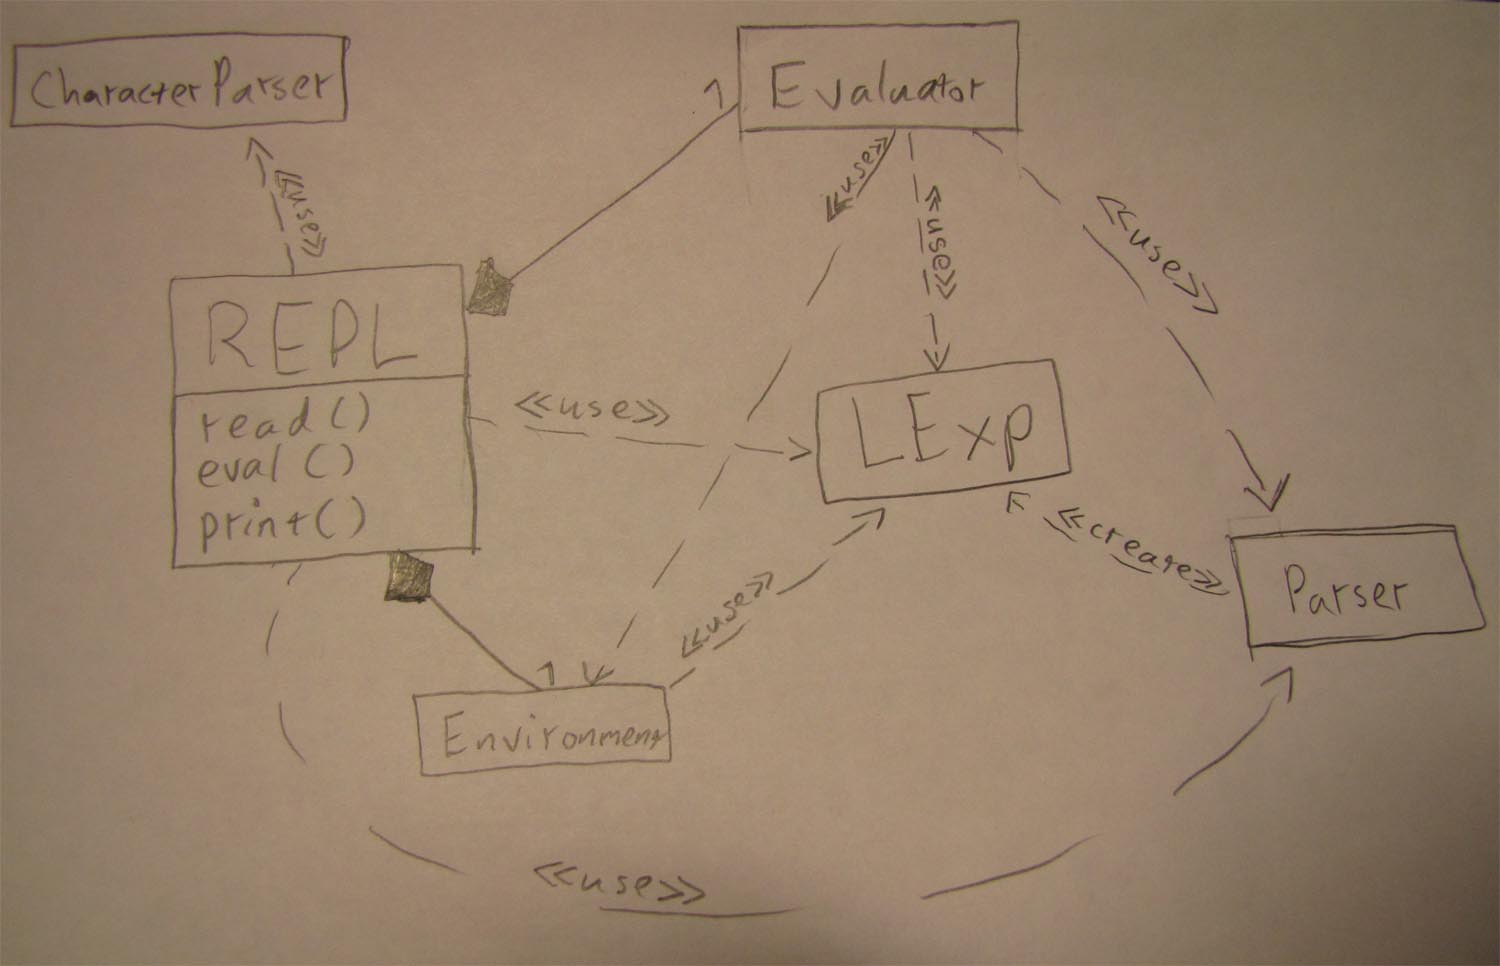 CharacterParser
1
Evaluator
<<use>>
<<use>>
<<use>>
<<use>>
REPL
read()
eval()
print()
<<use>>
LExp
<<create>>
Parser
<<use>>
1
Environment
<<use>>